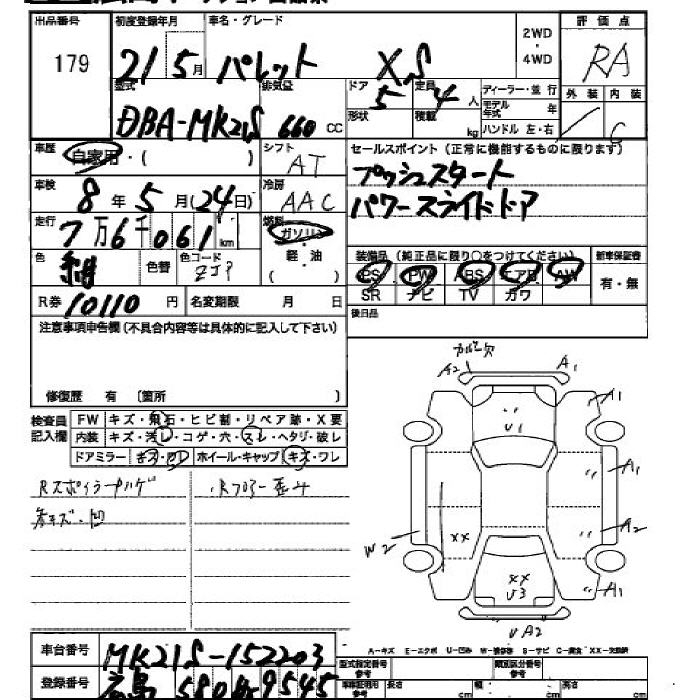 出品番号 初度登録年月 車名・グレード 2WD・4WD 評価点
179 21 5月 パレット XS RA
型式 排気量 ドア 定員 ディーラー・並行 外装 内装
DBA-MK21S 660 CC 5 4人 モデル年式 年 / C
形状 積載 kg ハンドル 左・右
車歴 自家用・( ) シフト AT セールスポイント (正常に機能するものに限ります)
車検 8年 5月(24日) 冷房 AAC プッシュスタート
走行 7万6千061km 燃料 ガソリン パワースライドドア
色 色替 色コード ZJP 軽・油 ( )
装備品 (純正品に限り○をつけてください) 新車保証書
PS PW ABS エアB AW 有・無
SR ナビ TV カワ
R券 10110円 名変期限 月 日 後日品
注意事項申告欄 (不具合内容等は具体的に記入して下さい)
修復歴 有 〔箇所 〕
検査員記入欄 FW キズ・飛石・ヒビ割・リペア跡・X要
内装 キズ・汚レ・コゲ・穴・スレ・ヘタリ・破レ
ドアミラー キズ・ワレ ホイール・キャップ キズ・ワレ
Rスポイラーハゲ
各キズ・凹
Rフロアー歪み
カルモ欠
A2 A1
U1 A1
A1
XX A2
W2
XX A1
U3
U A2
A-キズ E-エクボ U-凹み W-補修跡 S-サビ C-腐食 XX-交換済
車台番号 MK21S-152203
登録番号 広島 580 9545
型式指定番号 参考 類別区分番号 参考
長さ cm 幅 cm 高さ cm